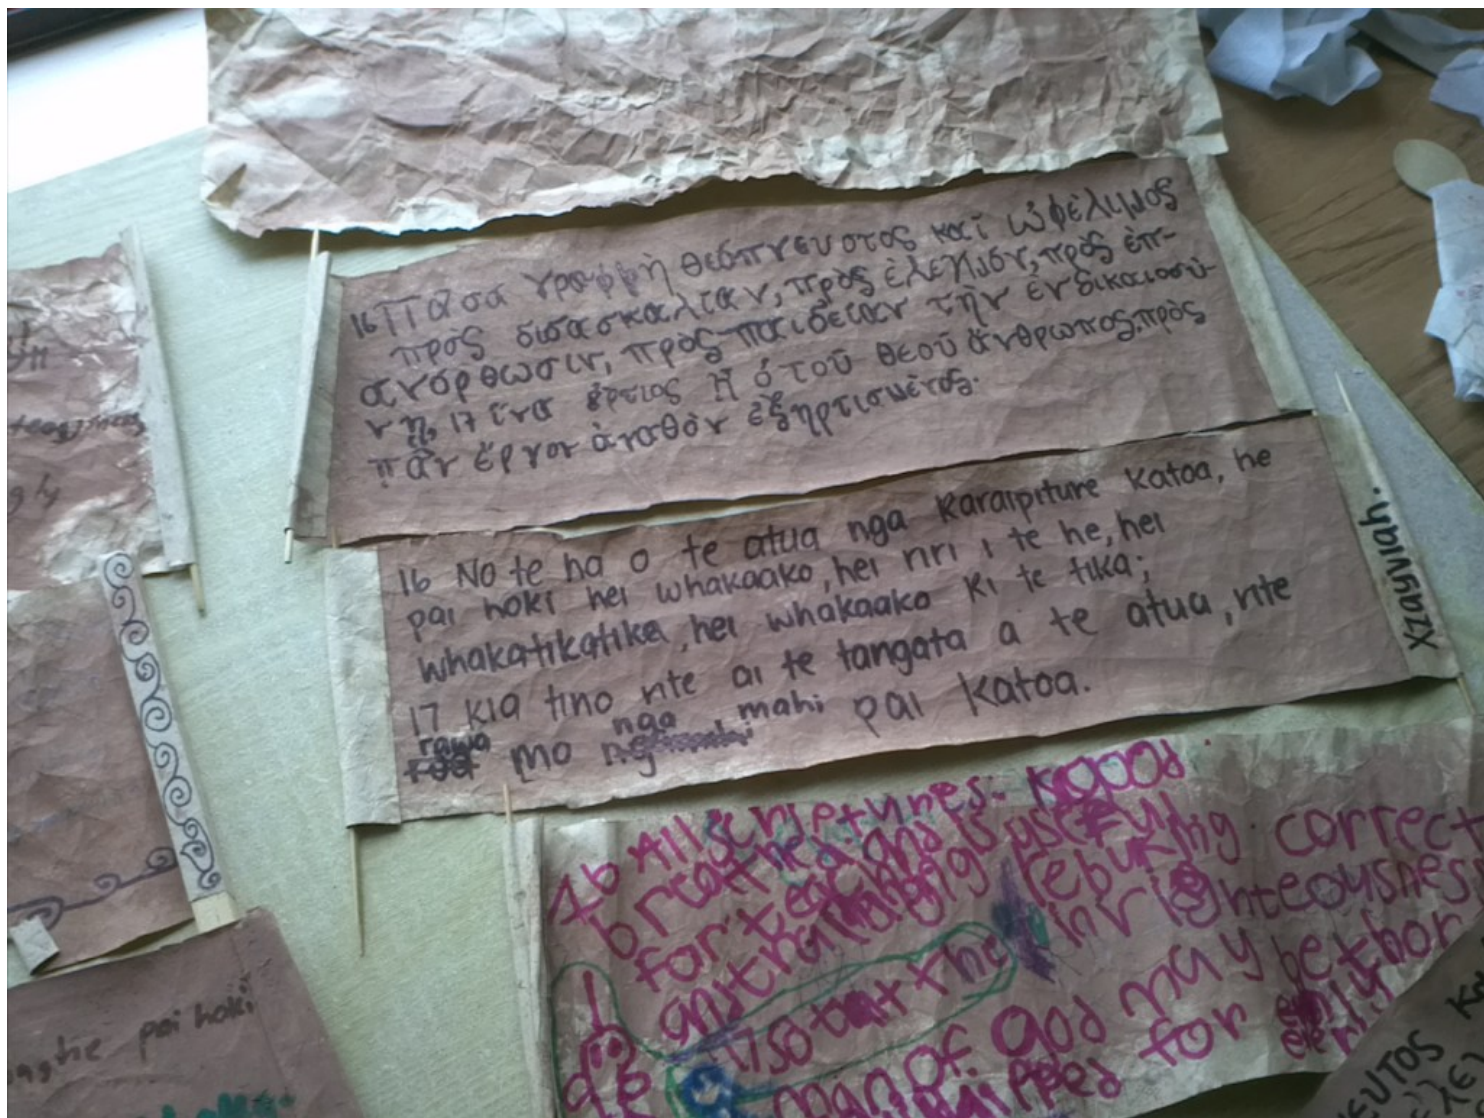 16 Πᾶσα γραφφὴ θεόπνευστος καὶ ὠφέλιμος
πρὸς διδασκαλίαν, πρὸς ἐλεγμόν, πρὸς ἐπ-
ανόρθωσιν, πρὸς παιδείαν τὴν ἐν δικαιοσύ-
νῃ, 17 ἵνα ἄρτιος ᾖ ὁ τοῦ θεοῦ ἄνθρωπος, πρὸς
πᾶν ἔργον ἀγαθὸν ἐξηρτισμένος.
16 No te ha o te atua nga Karaipiture katoa, he
pai hoki hei whakaako, hei riri i te he, hei
whakatikatika, hei whakaako ki te tika;
17 kia tino rite ai te tangata a te atua, rite
rawa mo nga mahi pai katoa.
Xzayviah.
All scrietures. is good
breathed and is useful
for teaching rebuking correct
and in righteousness
so that the
man of god may be thor
for
pai hoki